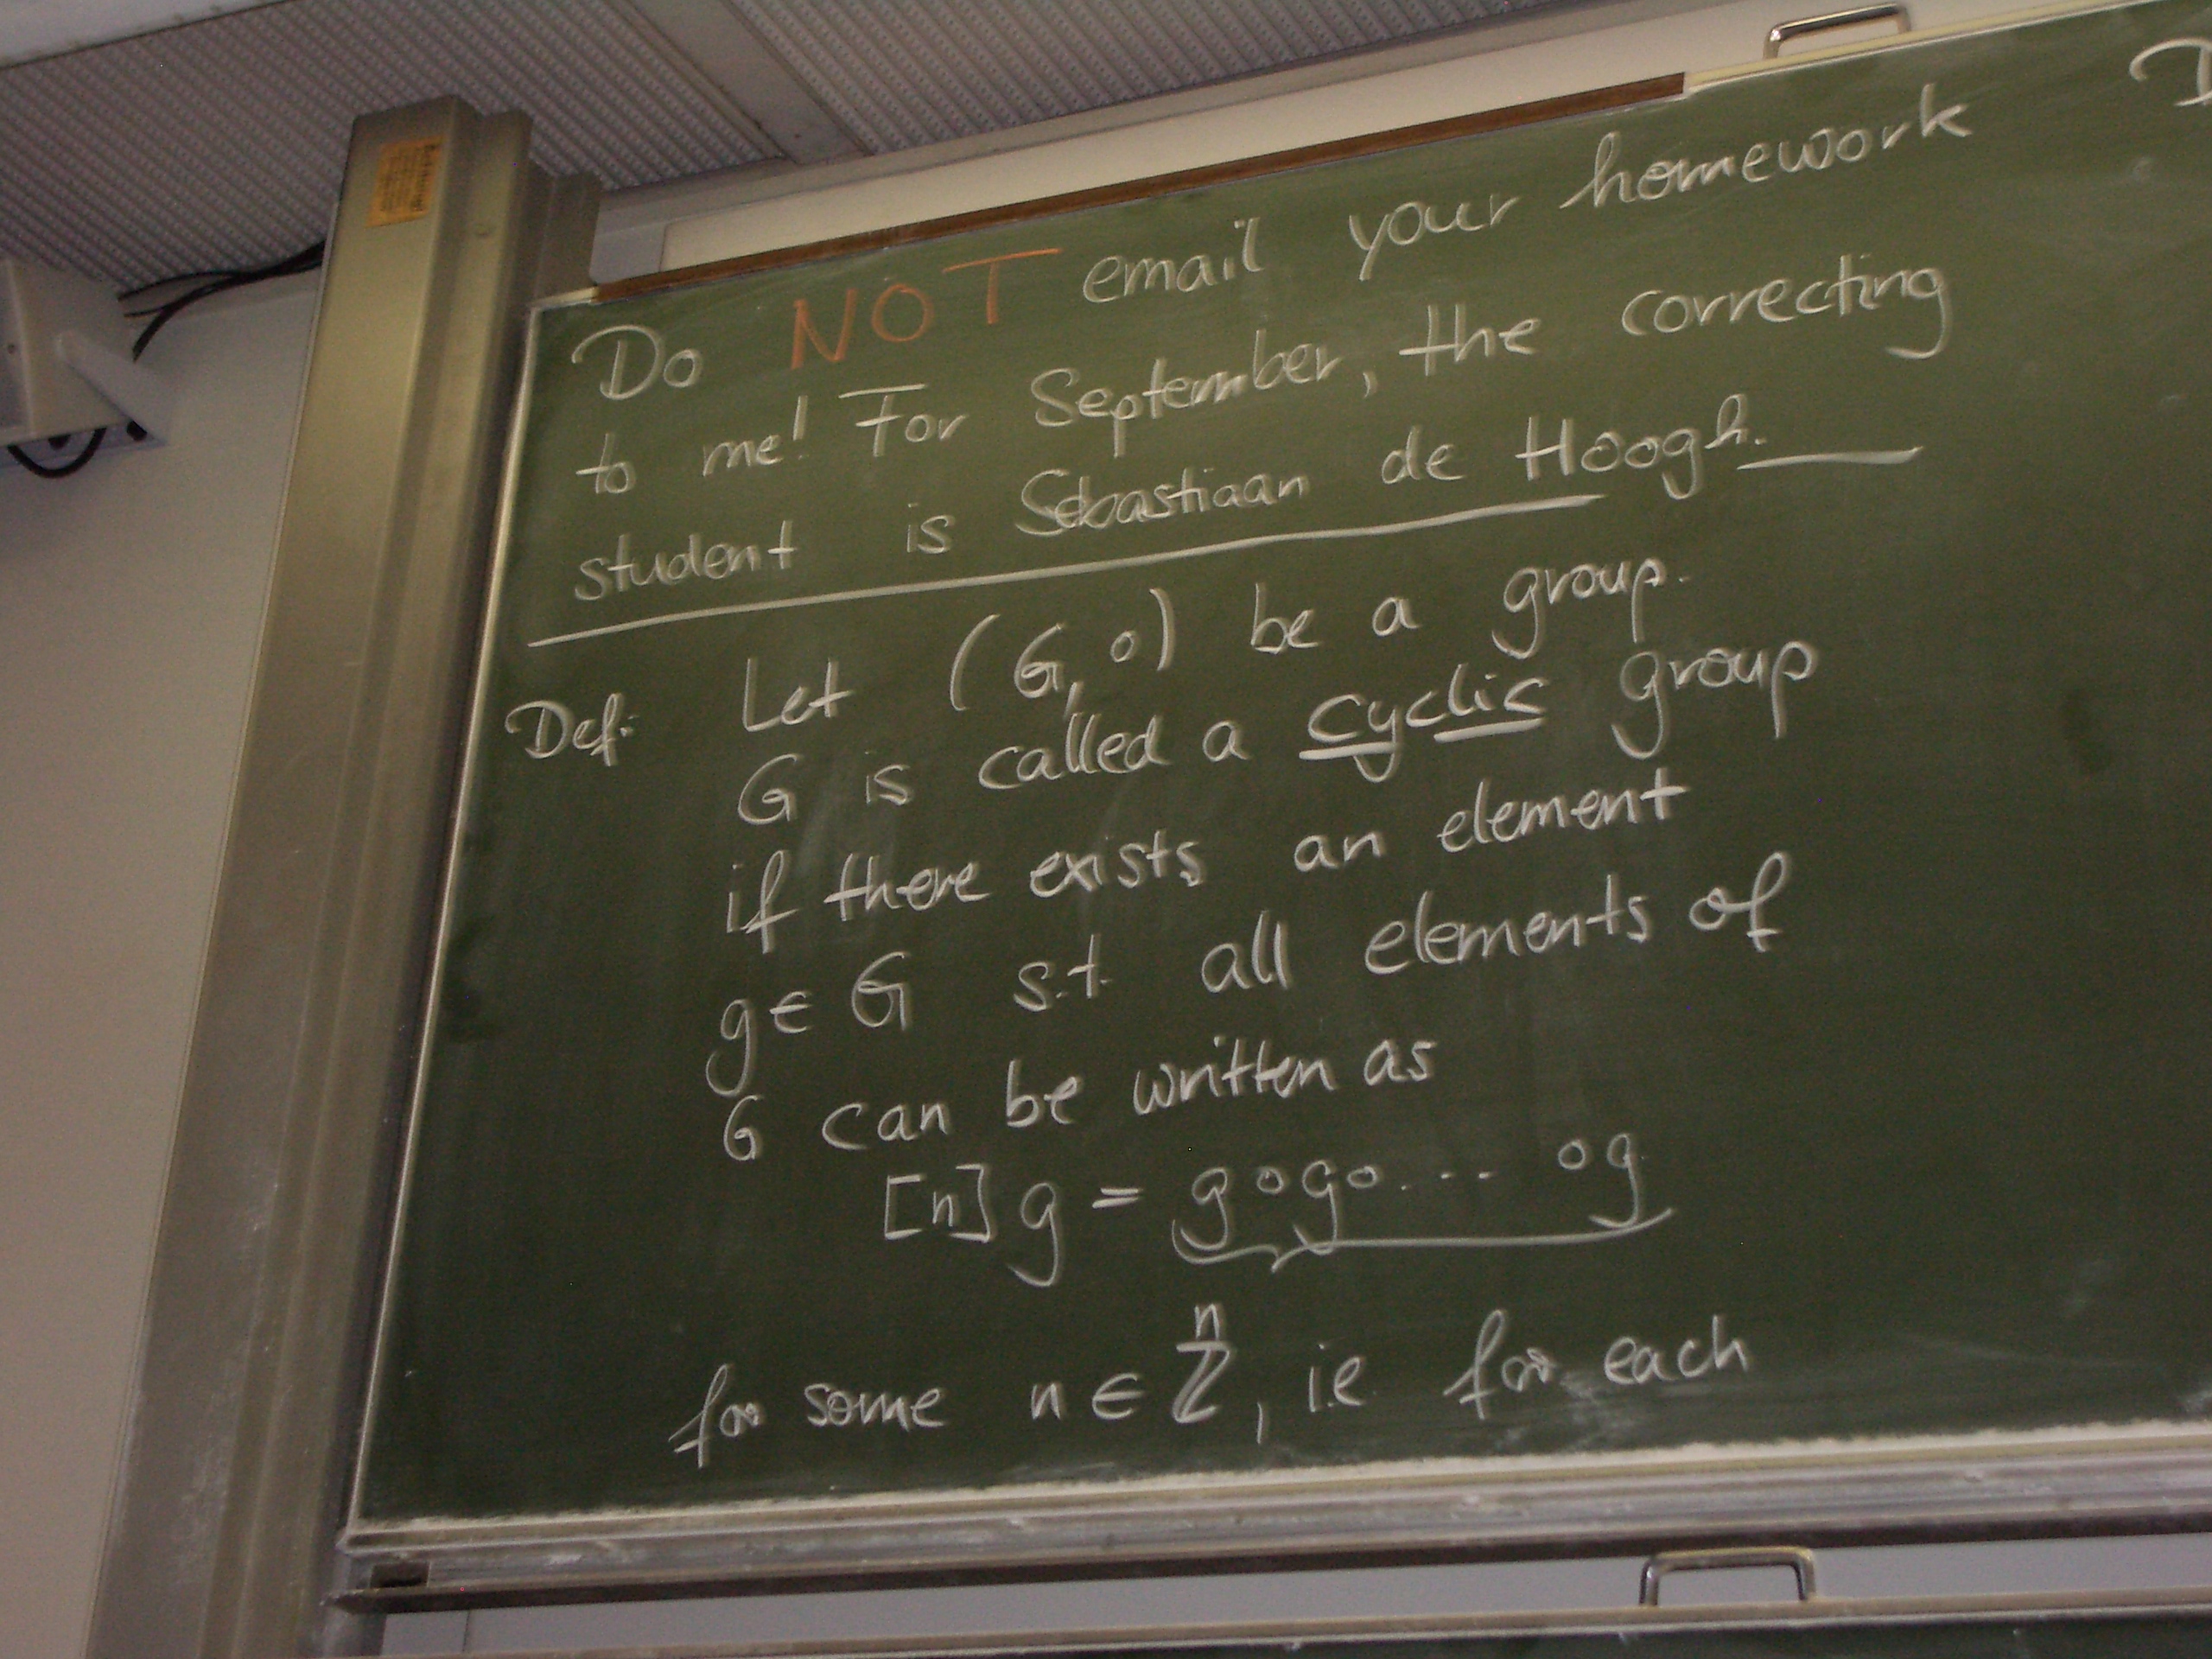 Do NOT email your homework
to me! For September, the correcting
student is Sebastiaan de Hoogh.
Def: Let (G, ∘) be a group.
G is called a cyclic group
if there exists an element
g ∈ G s.t. all elements of
G can be written as
[n] g = g ∘ g ∘ ... ∘ g
n
for some n ∈ ℤ, i.e for each